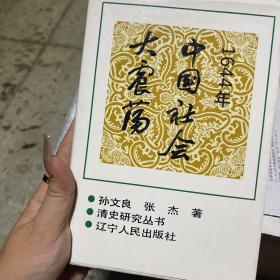 1644年
中国社会
大震荡
孙文良 张杰 著
清史研究丛书
辽宁人民出版社